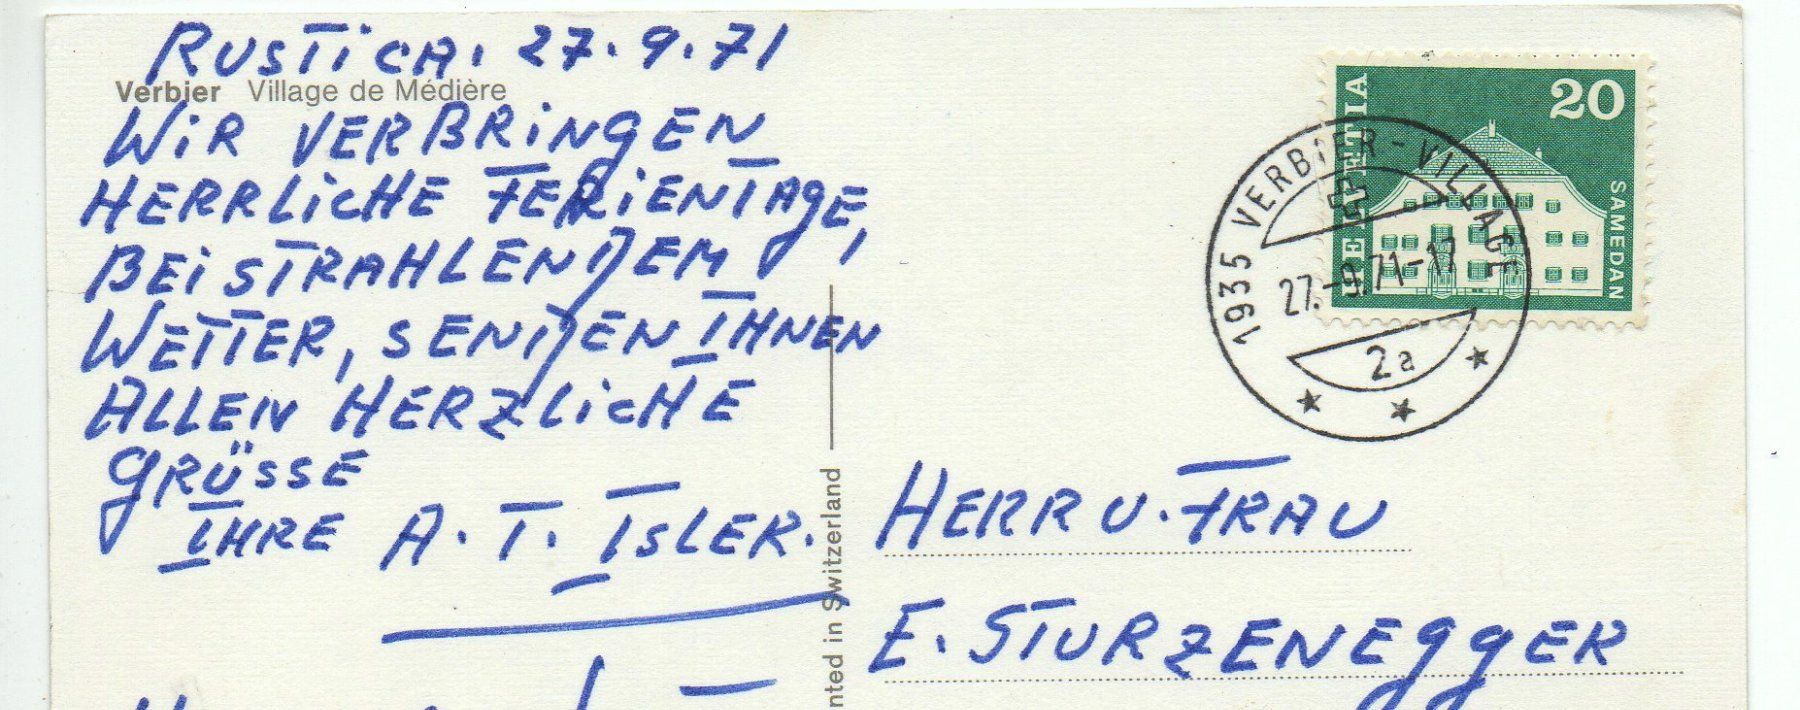 RUSTICA. 27.9.71
Verbier Village de Médière
WIR VERBRINGEN
HERRLICHE FERIENTAGE,
BEI STRAHLENDEM
WETTER, SENDEN IHNEN
ALLEN HERZLICHE
GRÜSSE
IHRE A. T. ISLER.
nted in Switzerland
HELVETIA
20
SAMEDAN
1935 VERBIER-VILLAGE
27.-9.71-17
2a
HERR U. FRAU
E. STURZENEGGER